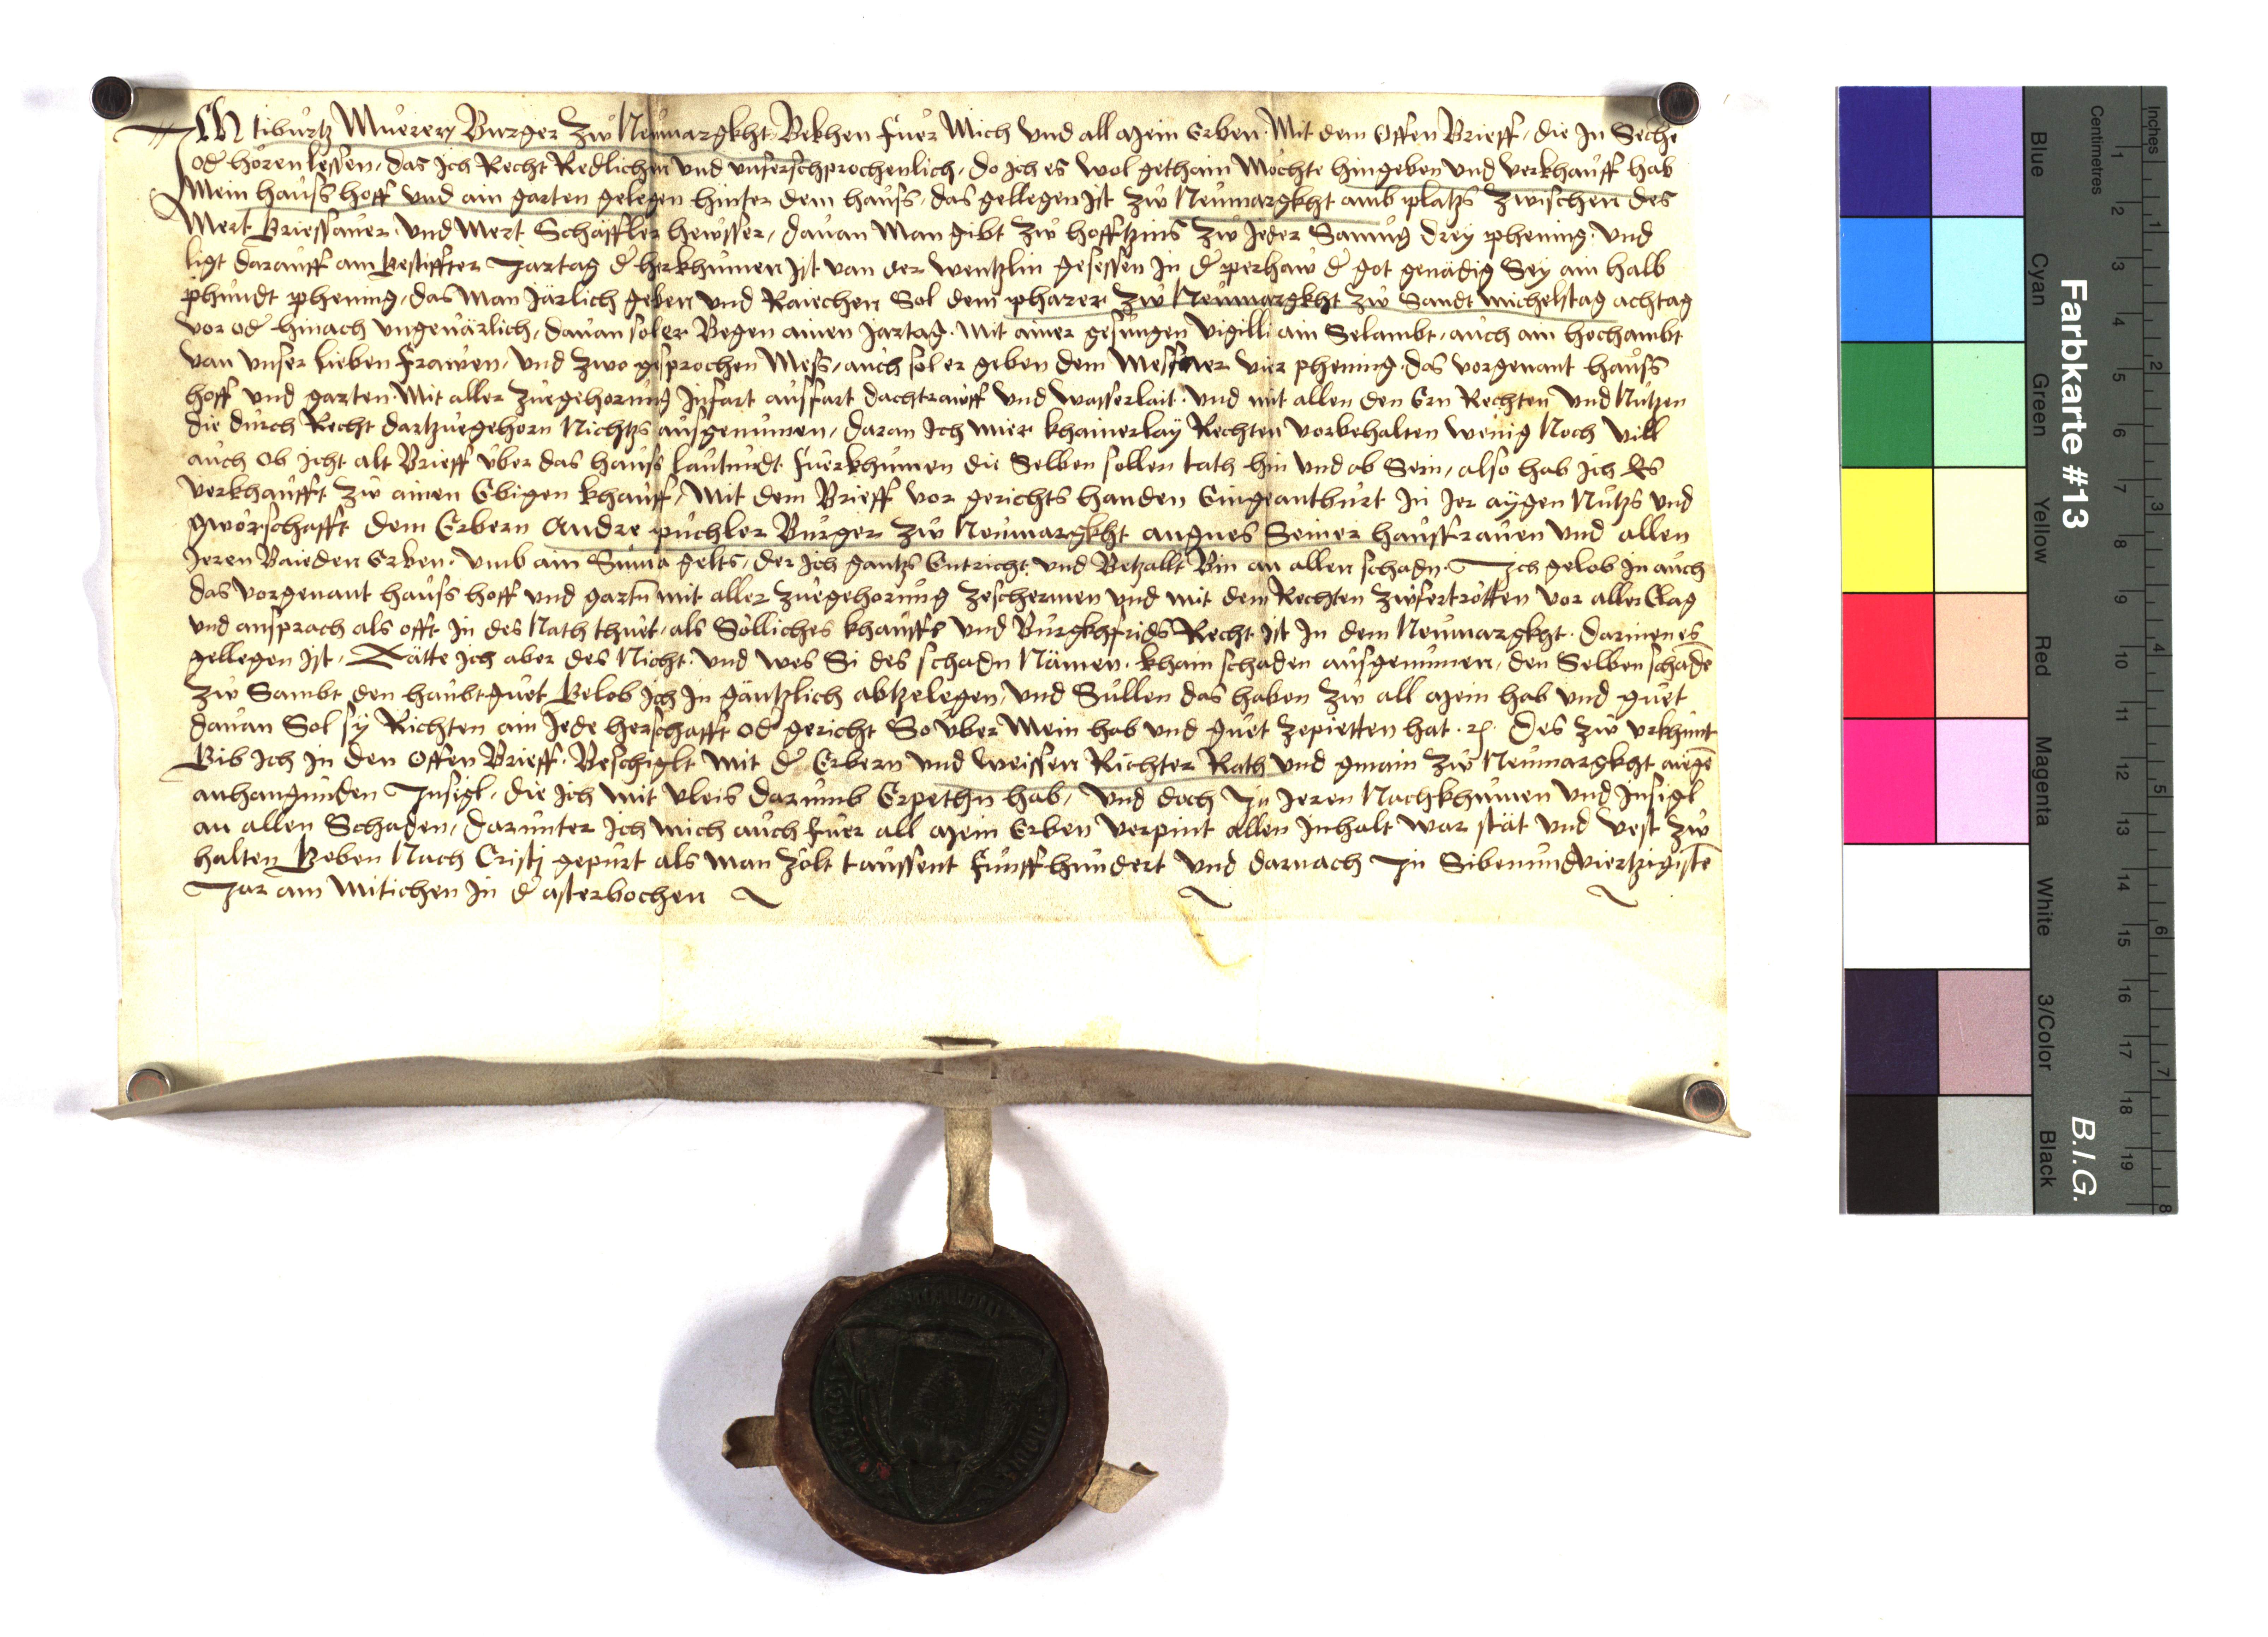 Ich Tiburtz Muerer Burger zw Neumargkht Bekhen fuer Mich Und all Mein Erben Mit dem Offen Brieff, die In Sechen
oder hören lessen, das ich Recht Redlichen und unferschprochenlich, do ich es wol gethain Mochte hingeben und verkhauff hab
Mein hauss hoff und ain garten gelegen hinter dem hauss, das gellegen ist zw Neumargkht amb platzs zwischen des
Mert Priessauer und Mert Schäffler hewsser, dauan Man gibt zw hofftzins zw Jeder Sanung drey phening Und
ligt darauff am Gestiffter Jartag der herkhumen ist van der wentzlin gesessen in der perhaw der got genädig Sey ain halb
phundt phening, das Man Järlich geben und Raiechen Sol dem pharer zw Neumargkht zw Sandt Michelstag achtag
vor oder hinach ungeuärlich, dauan sol er Begen ainen Jartag Mit ainer gesungen Vigilli ain Selambt, auch ain hochambt
van unser lieben frawen, und zwo gesprochen Mess, auch sol er geben dem Messner vier phening, das vorgenant hauss
hoff und garten Mit aller zuegehorung Infart ausfart dachtraieff und wasserlait, und mit allen den Ern Rechten und Nutzen
die durch Recht dartzuegehorn Nichtzs ausgenumen, daran ich mier khainerlay Rechten vorbehalten wenig Noch vill
auch ob icht alt Brieff uber das hauss lautundt fuerkhumen die Selben sollen tath hin und ab Sein, also hab ich Es
verkhaufft zw ainen Ebigen khauff, Mit dem Brieff vor gerichts handen Eingeantburt in Jer aygen Nutzs und
gworschafft dem Erbern Andre puchler Burger zw Neumargkht angnes Seiner hausfrauen und allen
Jeren Baieden Erben, umb ain Suma gelts, der ich gantzs Entricht und Betzallt Bin an allen schadn. Ich gelob in auch
das vorgenant hauss hoff und gartn mit aller zuegehorung zeschermen und mit dem Rechten zwfertrotten vor aller Clag
und ansprach als offt in des Nath thuet, als Solliches khauffs und Burgkhfrids Recht ist in dem Neumargkht darinen es
gellegen ist, Tätte ich aber des Nicht und wes Si des schadn Nämen khain schaden ausgenumen, den Selben schaden
zw Sambt den haubtguet Gelob ich in gäntzlich abtzelegen, und Sullen das haben zw all Mein hab und guet
dauan Sol sy Richten ain Jede herschafft oder gericht So uber Mein hab und guet zepietten hat. Des zw urkhunt
Gib ich in den Offen Brieff Beschiglt mit der Erbern und weissen Richter Rath und gmain zw Neumargkht aiegen
anhangunden Insigl, die ich mit vleis darumb Erpethn hab, und doch In Jeren Nachkhumen und Insigl
an allen Schaden, darunter ich mich auch fuer all Mein Erben verpint allen inhalt war stät und vest zw
halten Geben Nach Cristj gepurt als man zölt taussent funffhundert und darnach In Sibenundviertzigisten
Jar am Mitichen in der asterbochen
Farbkarte #13
B.I.G.
Centimetres
Inches
Blue
Cyan
Green
Yellow
Red
Magenta
White
3/Color
Black
1 2 3 4 5 6 7 8 9 10 11 12 13 14 15 16 17 18 19
1 2 3 4 5 6 7 8